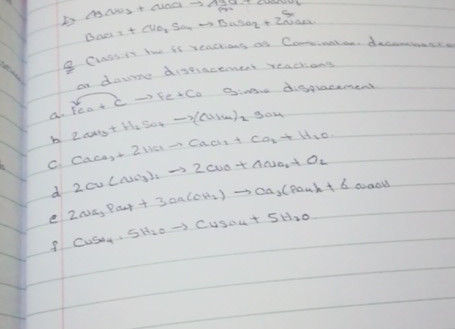 BaCl2 + Na2 So4 → BaSO4 + 2NaCl
g Classify the ff reactions as Combination, decomposition
or double displacement reactions
a. FeO + C → Fe + Co Single displacement
b 2NH3 + H2So4 → (NH4)2 SO4
c. CaCO3 + 2HCl → CaCl2 + CO2 + H2O
d 2Cu(NO3)2 → 2CuO + 4NO2 + O2
e 2Na3PO4 + 3Ca(OH)2 → Ca3(PO4)2 + 6 NaOH
f CuSO4 . 5H2O → CuSO4 + 5H2O